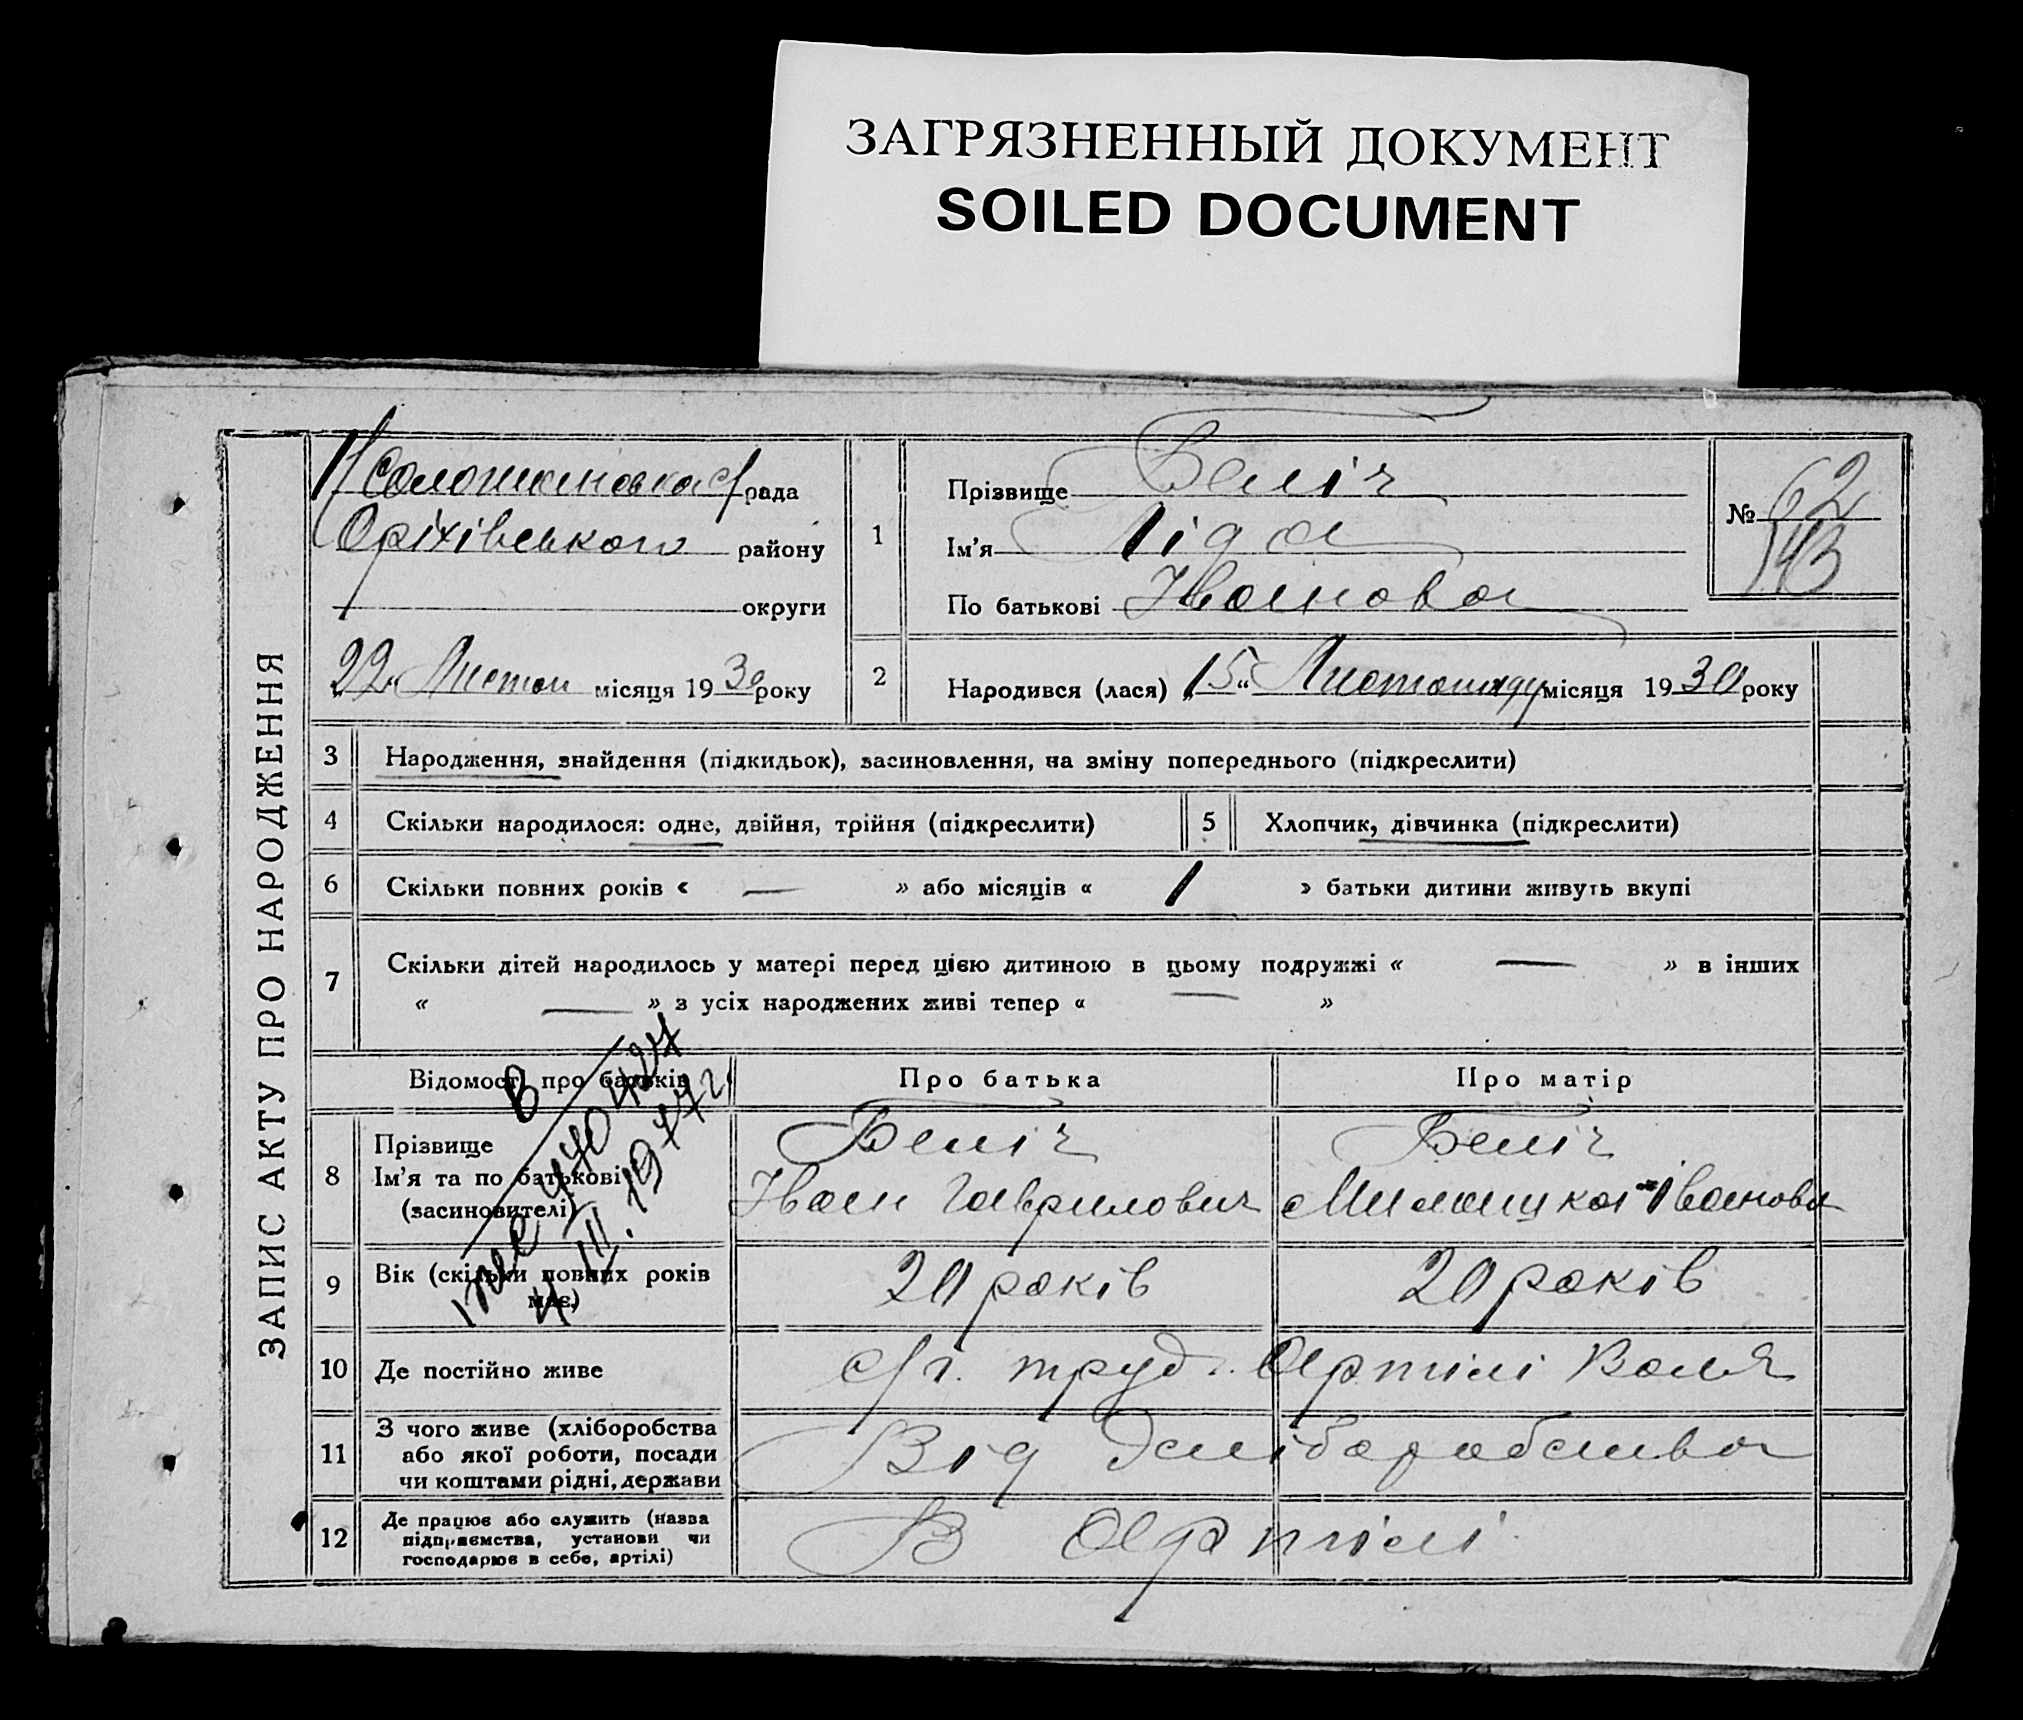 ЗАГРЯЗНЕННЫЙ ДОКУМЕНТ
SOILED DOCUMENT
ЗАПИС АКТУ ПРО НАРОДЖЕННЯ
рада
Оріхівського району
округи
22 Листоп місяця 1930 року
1 Прізвище Беліч
Ім'я Ліда
По батькові Іванова
№ 62
143
2 Народився (лася) „15“ Листопаду місяця 1930 року
3 Народження, знайдення (підкидьок), засиновлення, на зміну попереднього (підкреслити)
4 Скільки народилося: одне, двійня, трійня (підкреслити)
5 Хлопчик, дівчинка (підкреслити)
6 Скільки повних років « — » або місяців « 1 » батьки дитини живуть вкупі
7 Скільки дітей народилось у матері перед цією дитиною в цьому подружжі « — » в інших
« — » з усіх народжених живі тепер « — »
Відомості про батьків Про батька Про матір
8 Прізвище Беліч Беліч
Ім'я та по батькові Іван Гаврилович Іванова
(засиновителі)
9 Вік (скільки повних років має) 20 років 20 років
10 Де постійно живе с/г. труд. Артілі Воля
11 З чого живе (хліборобства
або якої роботи, посади
чи коштами рідні, держави
Від хліборобства
12 Де працює або служить (назва
підприємства, установи чи
господарює в себе, артілі)
В Артілі